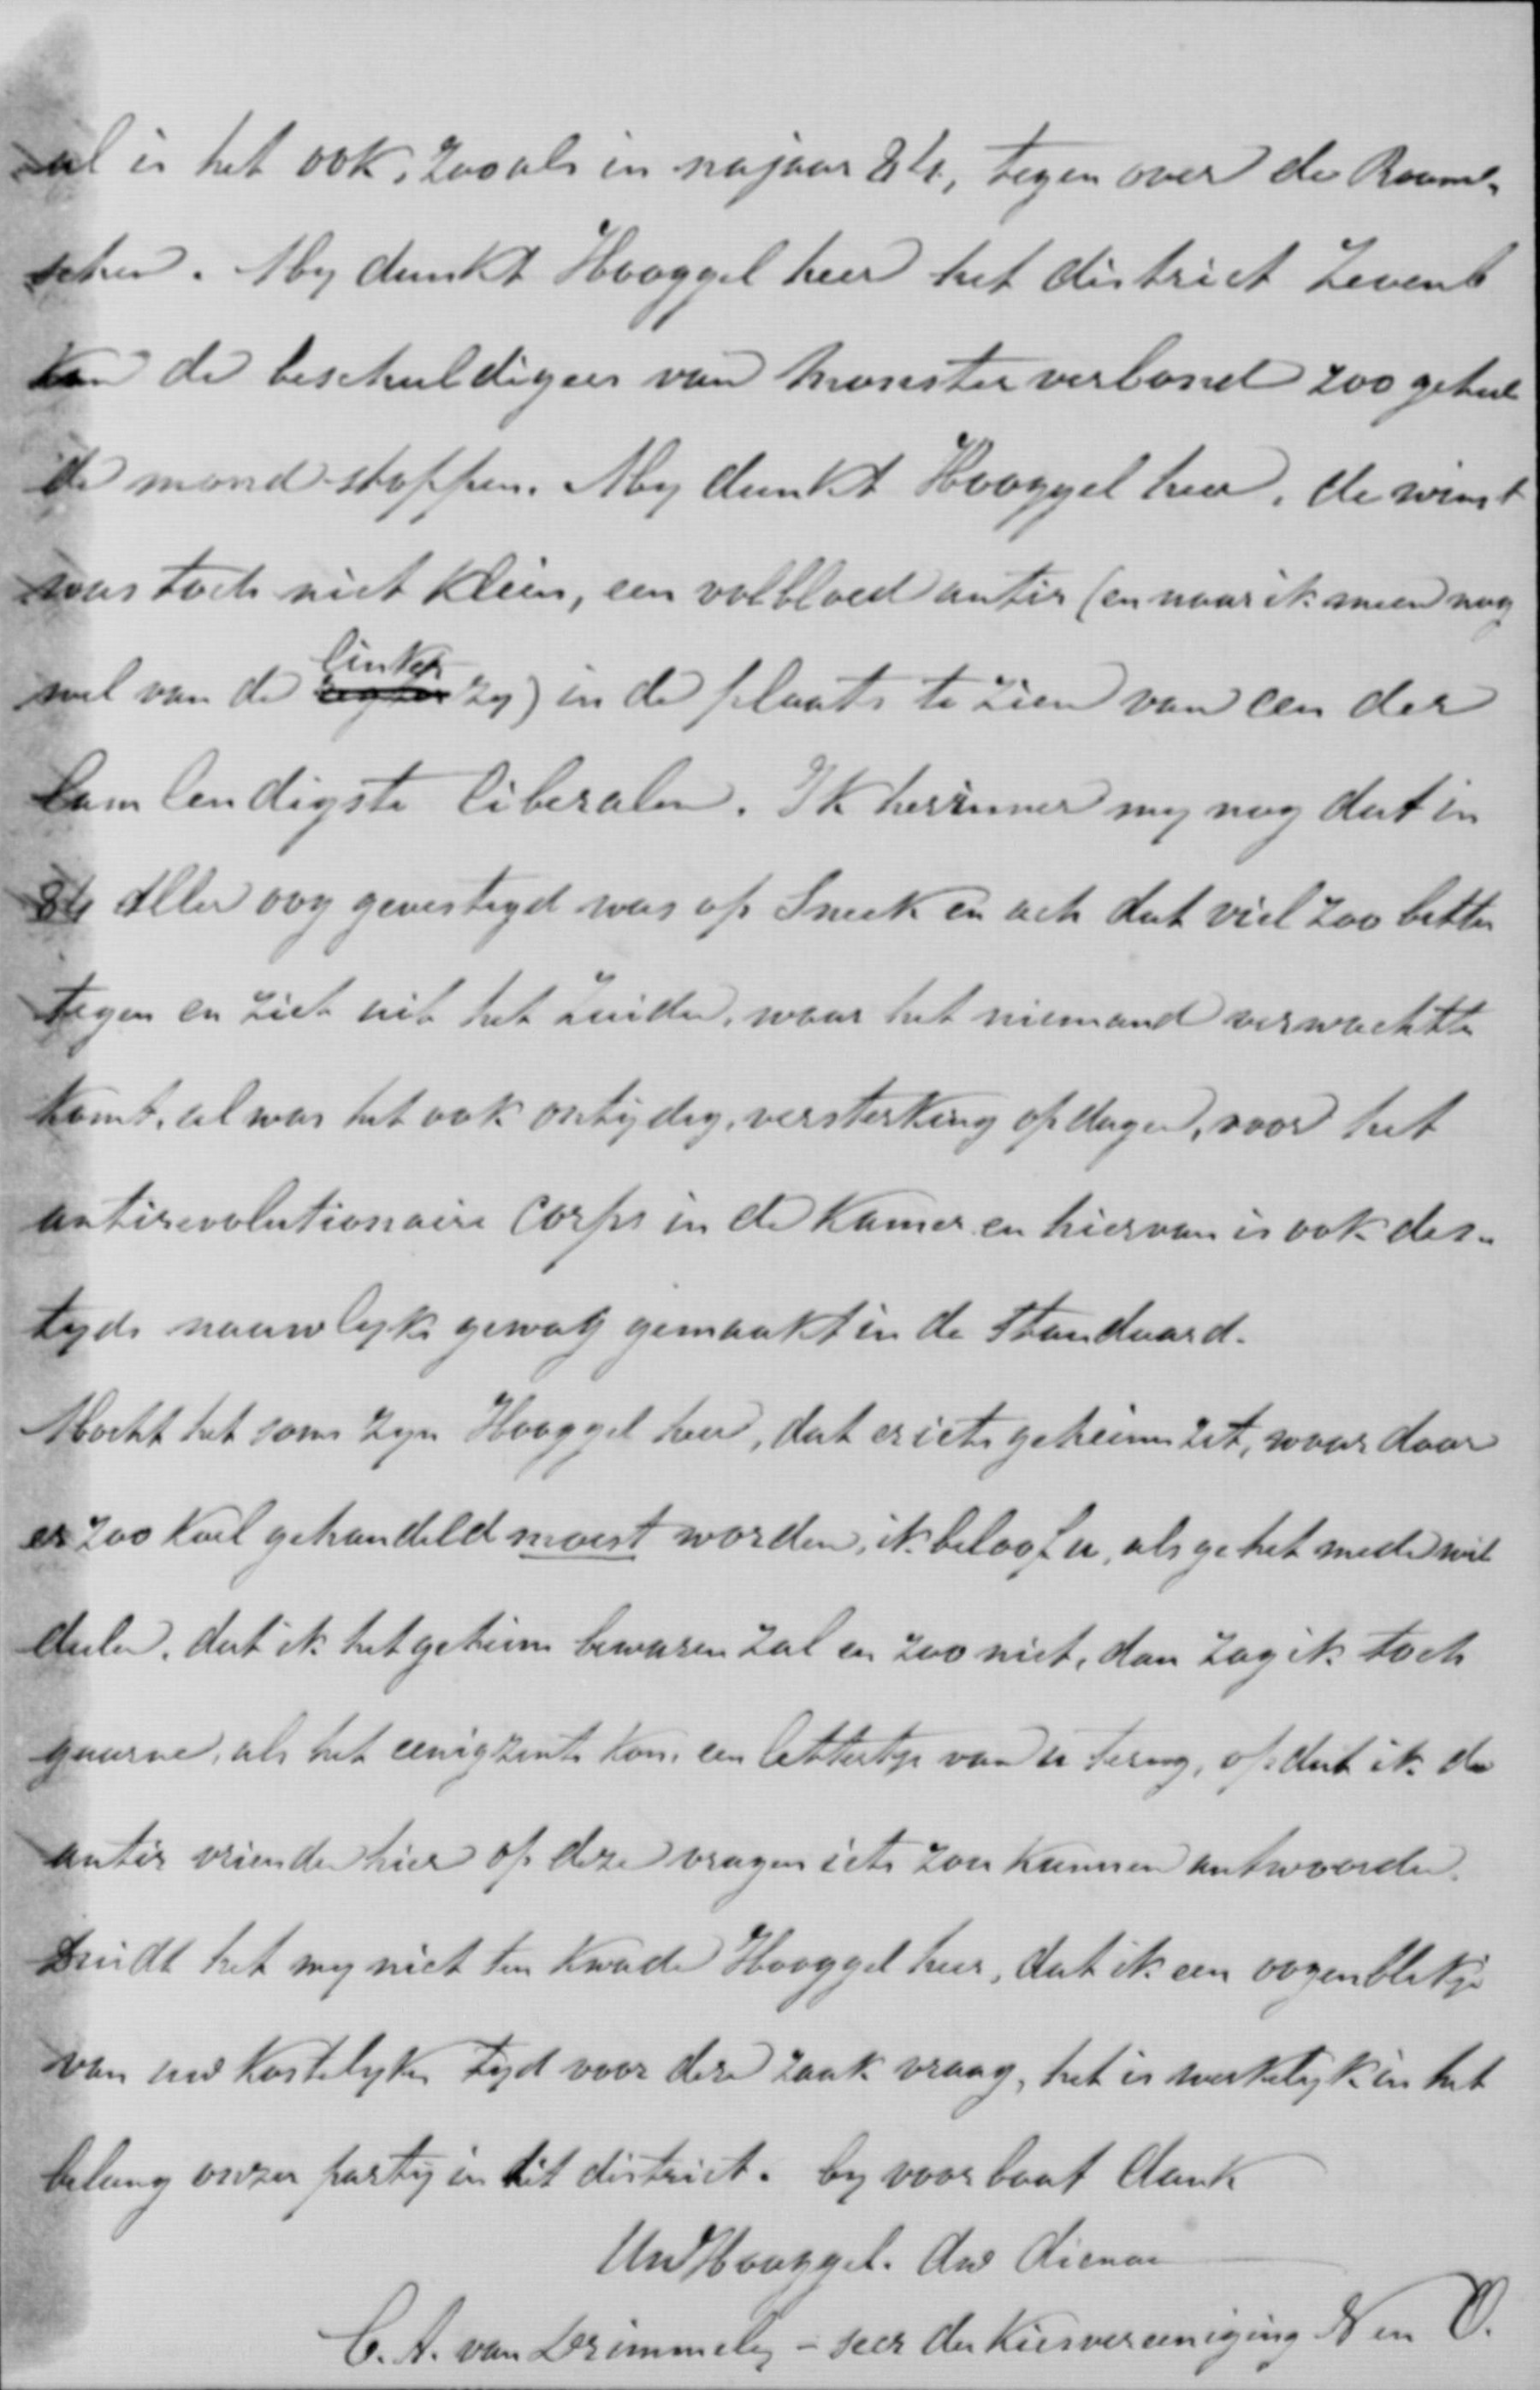 al is het ook, zooals in najaar 84, tegen over de Room-
schen. My dunkt Hooggel heer het district Zevenb
kan de beschuldigers van monsterverbond zoo geheel
de mond stoppen. My dunkt Hooggel heer, de winst
was toch niet klein, een volbloed antir (en naar ik meen nog
wel van de linker zy) in de plaats te zien van een der
lamlendigste liberalen. Ik herinner my nog dat in
84 Aller oog gevestigd was op Sneek en ach dat viel zoo bitter
tegen en ziet uit het Zuiden, waar het niemand verwachtte
komt, al was het ook ontydig, versterking opdagen, voor het
antirevolutionaire Corps in de Kamer en hiervan is ook des-
tyds nauwlyks gewag gemaakt in de Standaard.
Mocht het soms zyn Hooggel heer, dat er iets geheims zit, waar door
er zoo koel gehandeld moest worden, ik beloof u, als ge het mede wil
deelen, dat ik het geheim bewaren zal en zoo niet, dan zag ik toch
gaarne, als het eenigzints kon, een lettertje van u terug, opdat ik de
antir vrienden hier op deze vragen iets zou kunnen antwoorden.
Duidt het my niet ten kwade Hooggel heer, dat ik een oogenblikje
van uw kostelyke tyd voor deze zaak vraag, het is werkelyk in het
belang onzer party in dit district. by voorbaat dank
Uw Hooggel. dw dienaar
C. A. van Drimmelen - secr der Kiesvereeniging N en O.